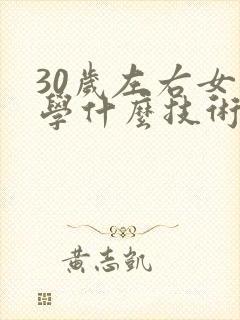 30歲左右女
學什麼技術
黃志凱